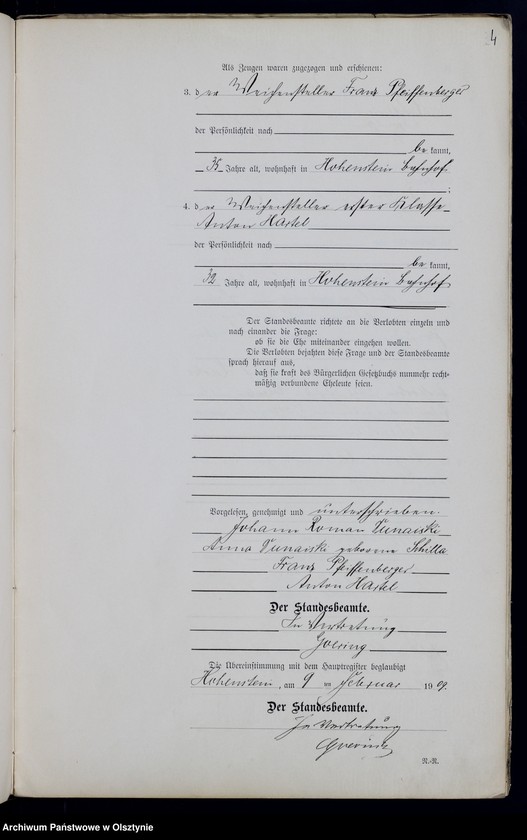 4
Als Zeugen waren zugezogen und erschienen:
3. der Weichensteller Franz Pfeiffenberger
der Persönlichkeit nach
be kannt,
35 Jahre alt, wohnhaft in Hohenstein Bahnhof
;
4. der Weichensteller erster Klasse
Anton Hastel
der Persönlichkeit nach
be kannt,
32 Jahre alt, wohnhaft in Hohenstein Bahnhof
Der Standesbeamte richtete an die Verlobten einzeln und
nach einander die Frage:
ob sie die Ehe miteinander eingehen wollen.
Die Verlobten bejahten diese Frage und der Standesbeamte
sprach hierauf aus,
daß sie kraft des Bürgerlichen Gesetzbuchs nunmehr recht-
mäßig verbundene Eheleute seien.
Vorgelesen, genehmigt und unterschrieben.
Johann Roman
Anna geborene Schilla
Franz Pfeiffenberger
Anton Hastel
Der Standesbeamte.
In Vertretung
Goering
Die Übereinstimmung mit dem Hauptregister beglaubigt
Hohenstein, am 9 ten Februar 1909.
Der Standesbeamte.
In Vertretung
Goering
R.-R.
Archiwum Państwowe w Olsztynie